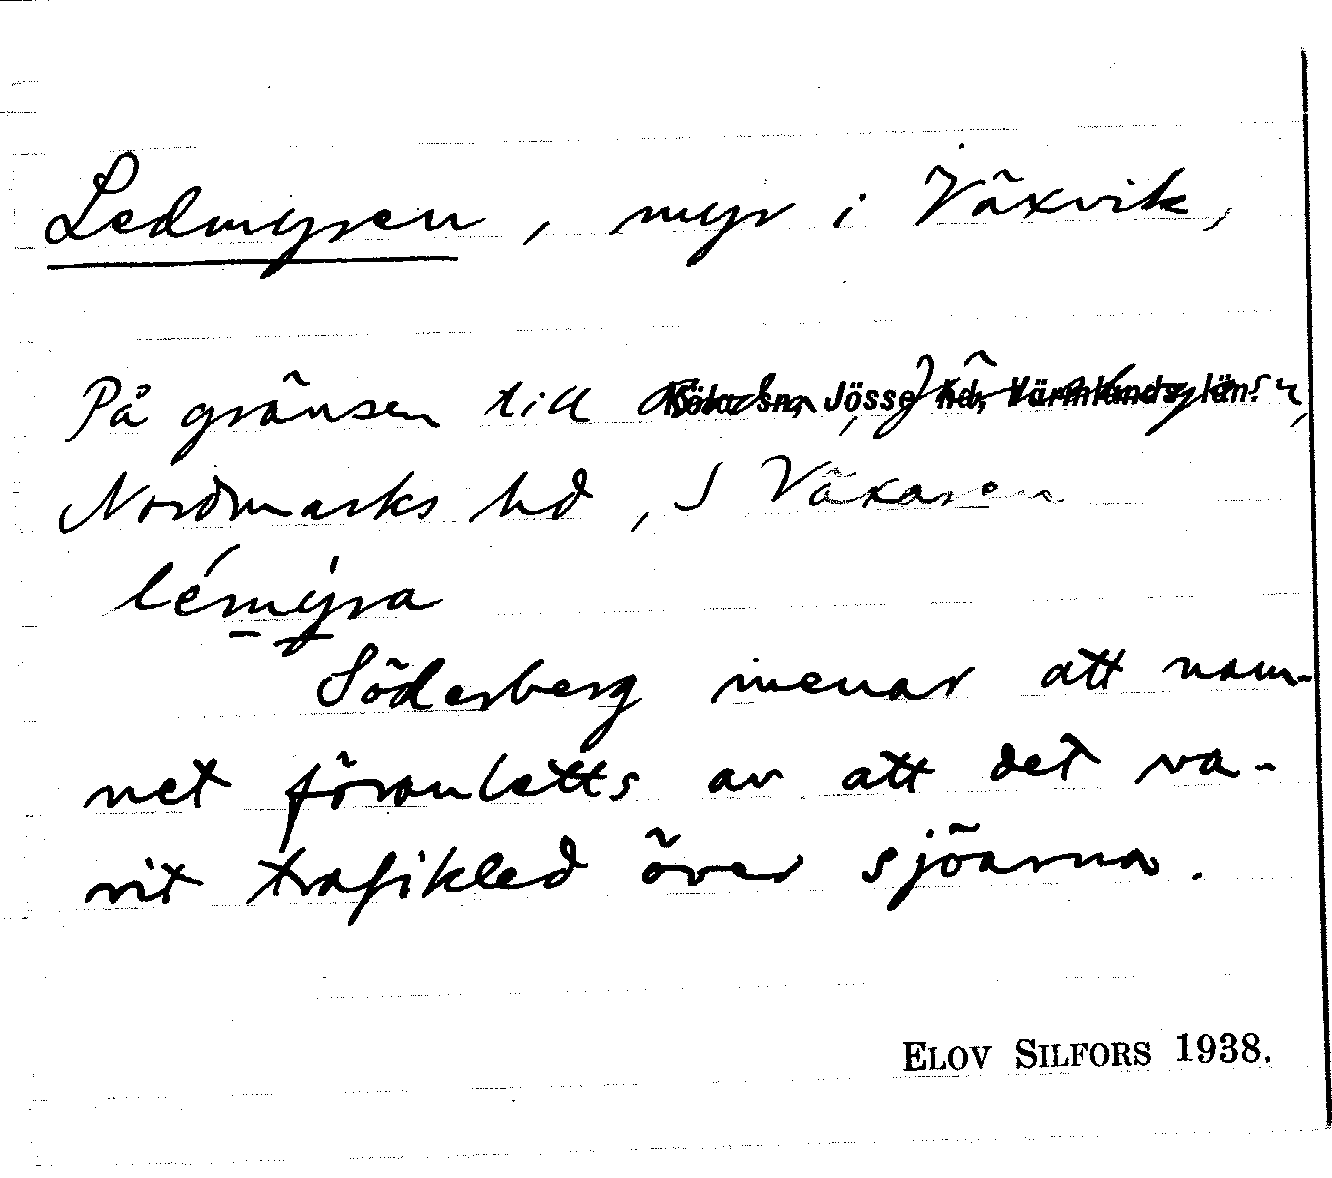 Ledmyren, myr i Växvik,
På gränsen till
Köla sn, Jösse hd, Värmlands län.
Nordmarks hd, S Växaren
lémýra
Söderberg menar att nam-
net föranletts av att det va-
rit trafikled över sjöarna.
ELOV SILFORS 1938.